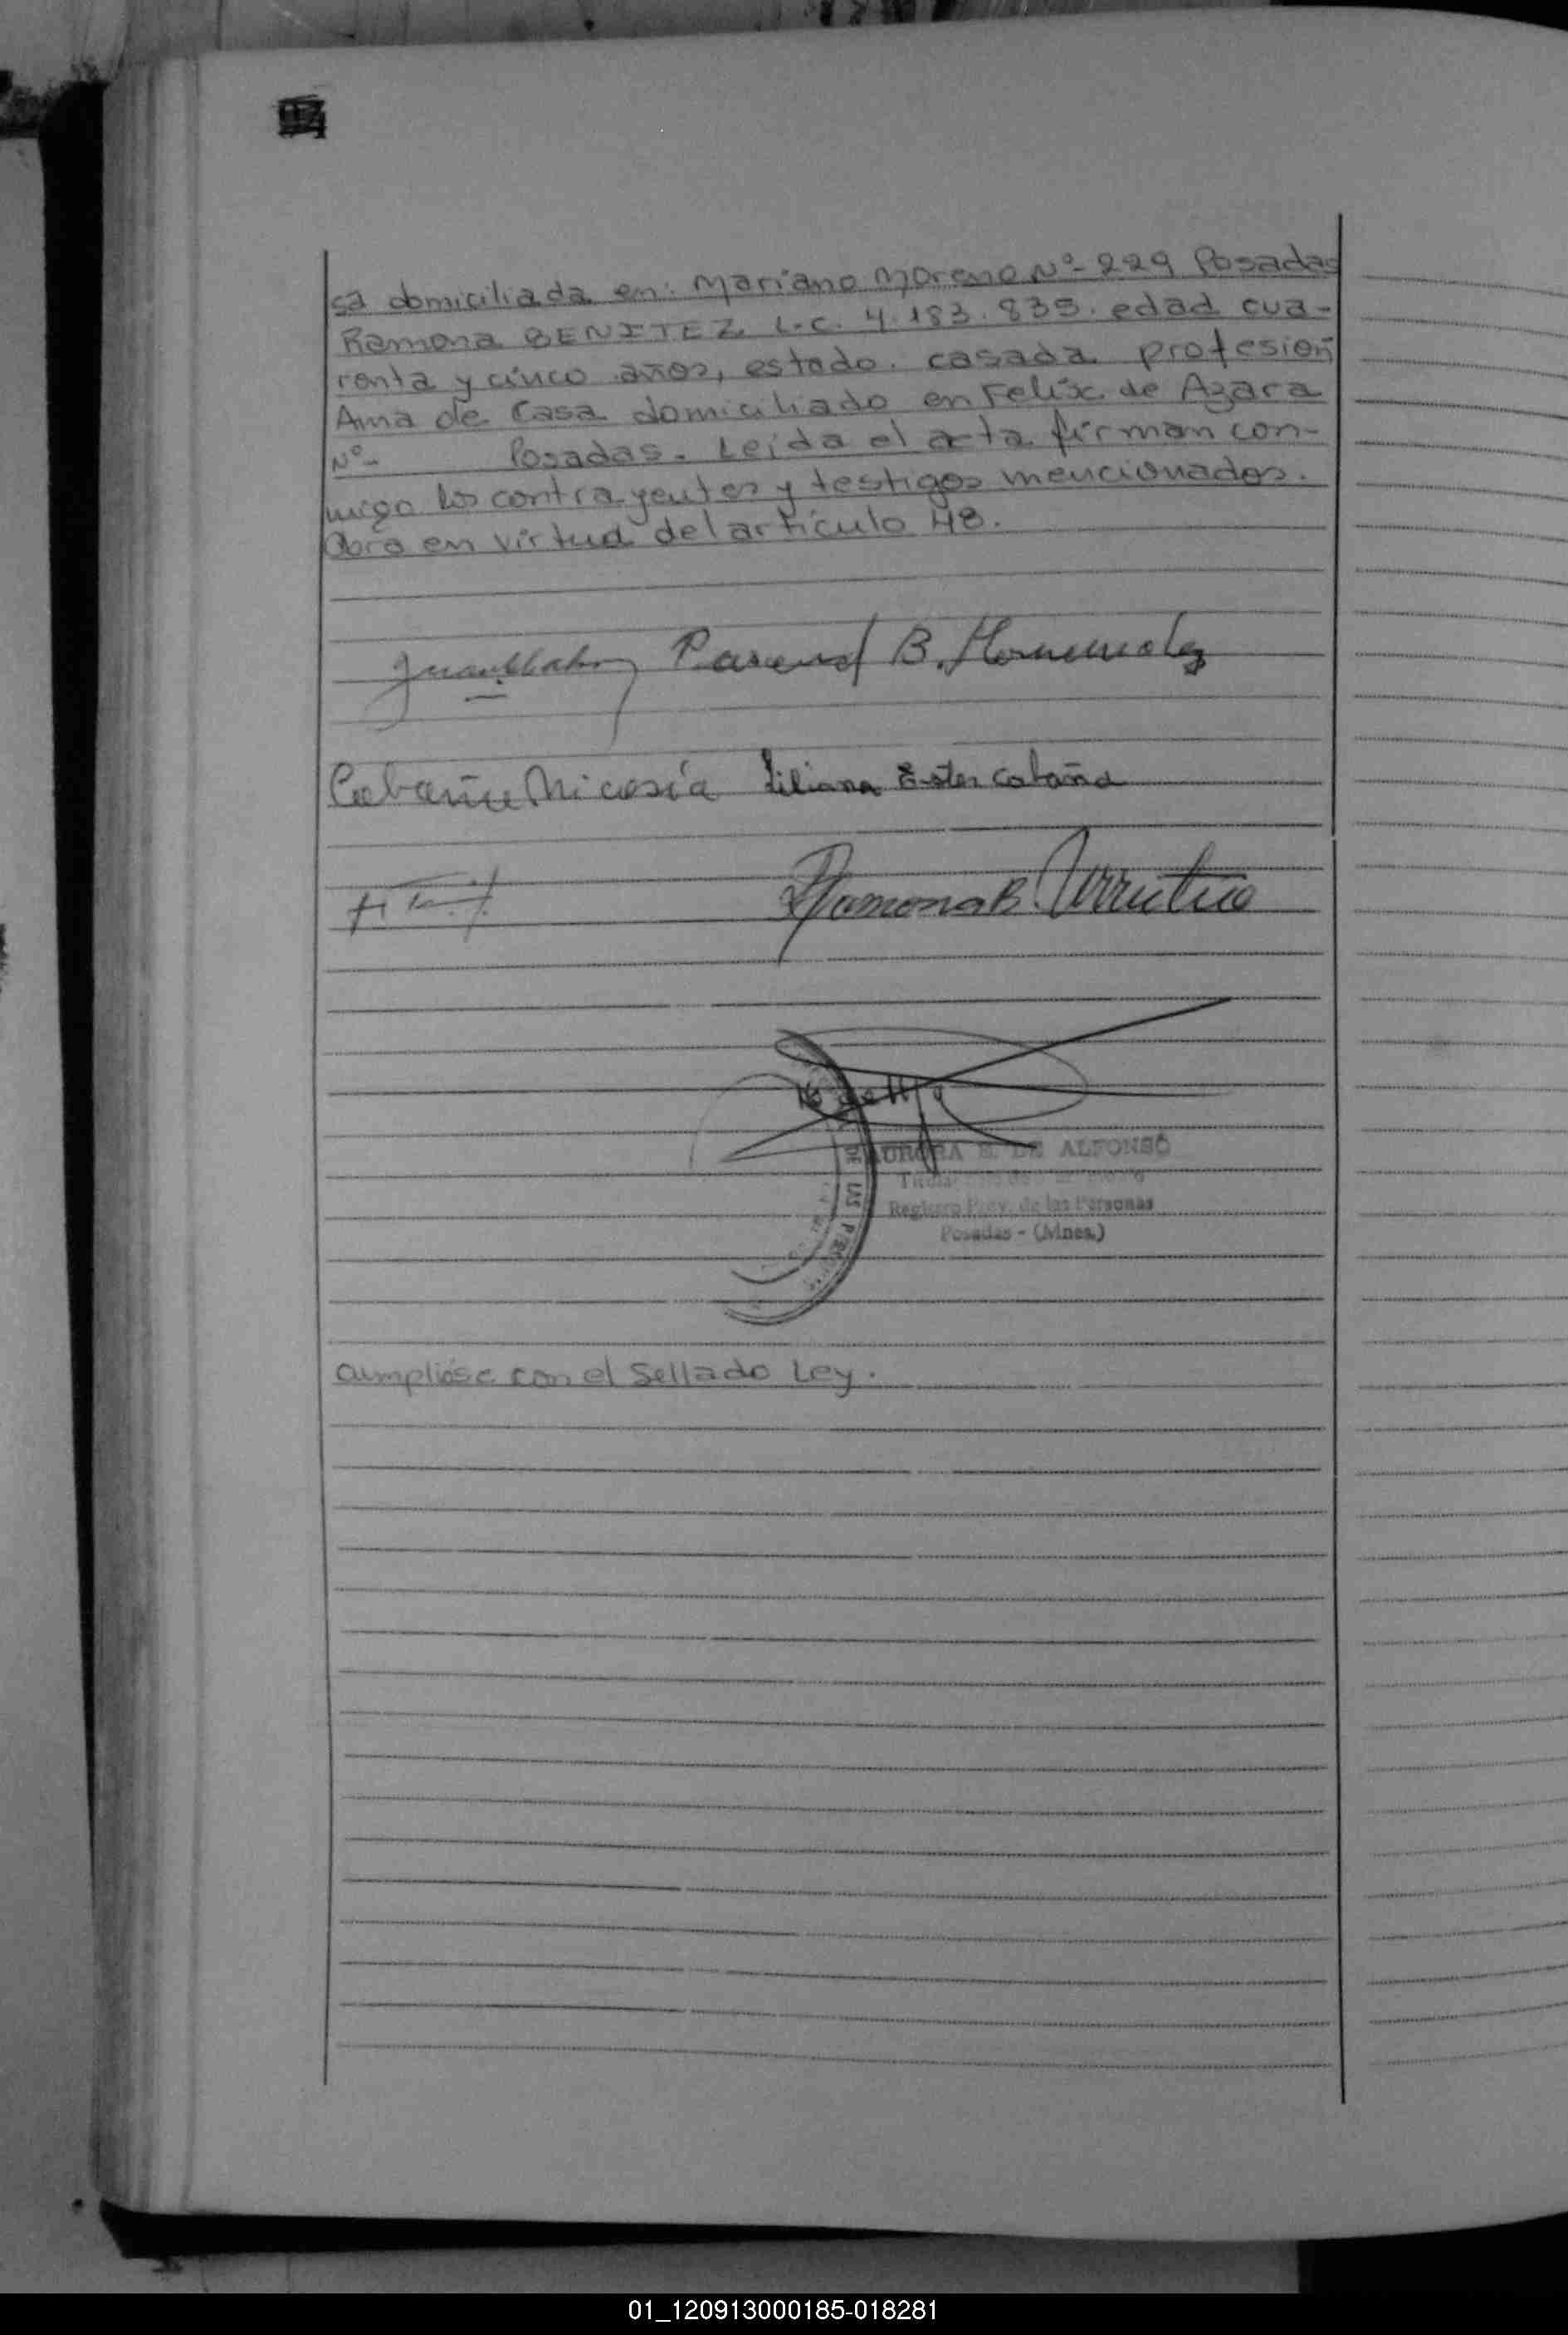 sa domiciliada en: Mariano Moreno Nº- 229 Posadas
Ramona BENITEZ L.C. 4.183.835. edad cua-
renta y cinco años, estado casada profesión
Ama de Casa domiciliado en Felix de Azara
Nº- Posadas. Leída el acta firman con-
migo los contrayentes y testigos mencionados.
Obra en virtud del artículo 48.
B.
Cabaña Nicasia Liliana Ester Cabaña
Ramona B. Urrutia
AURORA E. DE ALFONSO
Registro Prov. de las Personas
Posadas - (Mnes.)
Cumplióse con el Sellado Ley.
01_120913000185-018281